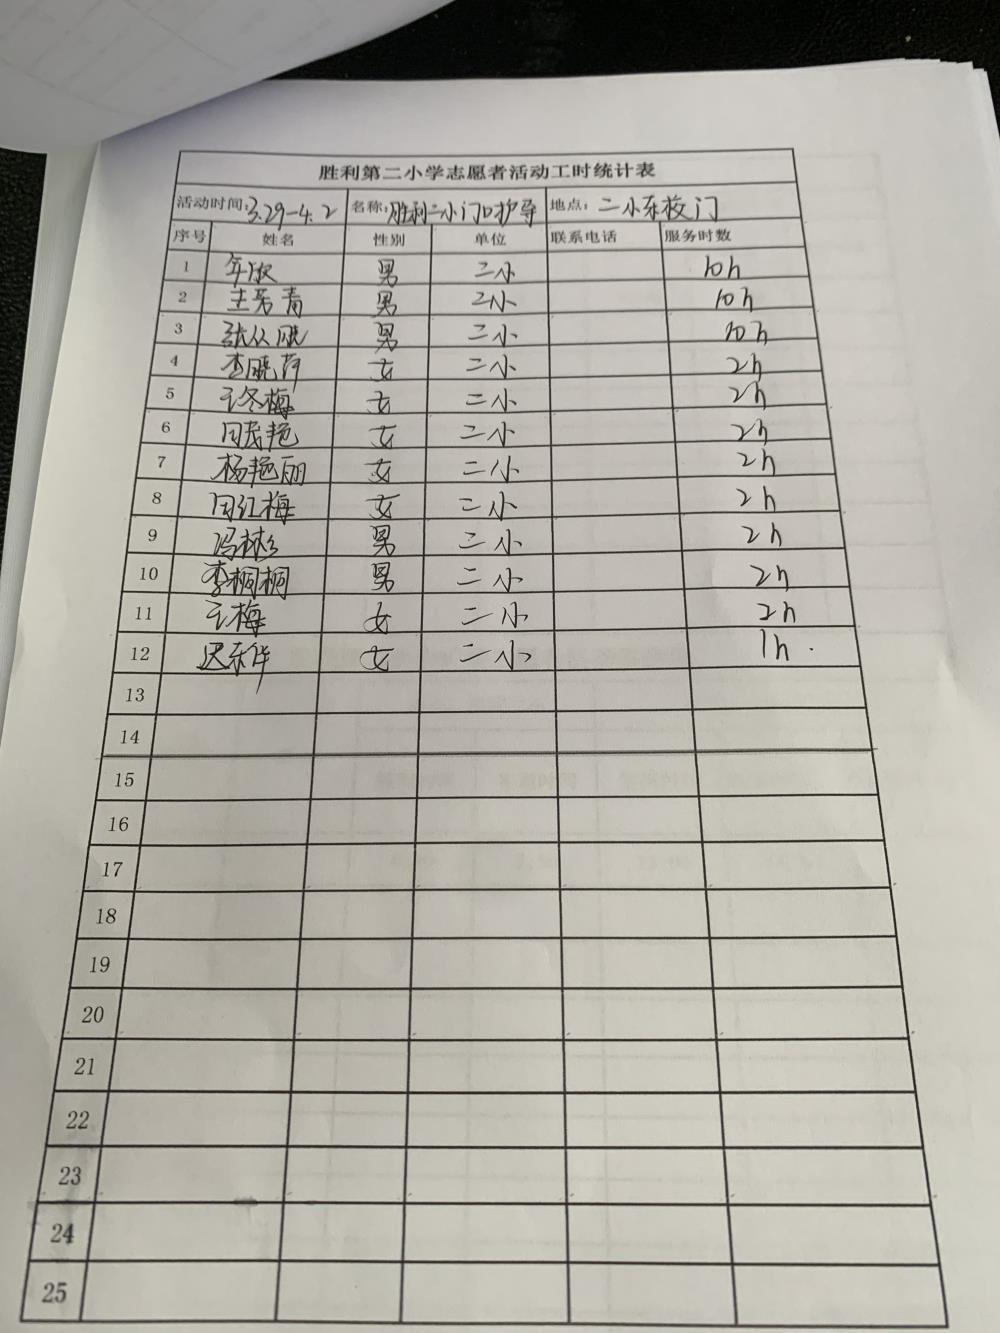 胜利第二小学志愿者活动工时统计表
活动时间:3.29-4.2 名称:胜利二小门口护导 地点:二小东校门
序号 姓名 性别 单位 联系电话 服务时数
1 男 二小 10h
2 王芳青 男 二小 10h
3 男 二小 10h
4 李晓萍 女 二小 2h
5 王冬梅 女 二小 2h
6 周茂艳 女 二小 2h
7 杨艳丽 女 二小 2h
8 周红梅 女 二小 2h
9 冯彬彬 男 二小 2h
10 李桐桐 男 二小 2h
11 王梅 女 二小 2h
12 迟东华 女 二小 1h.
13
14
15
16
17
18
19
20
21
22
23
24
25